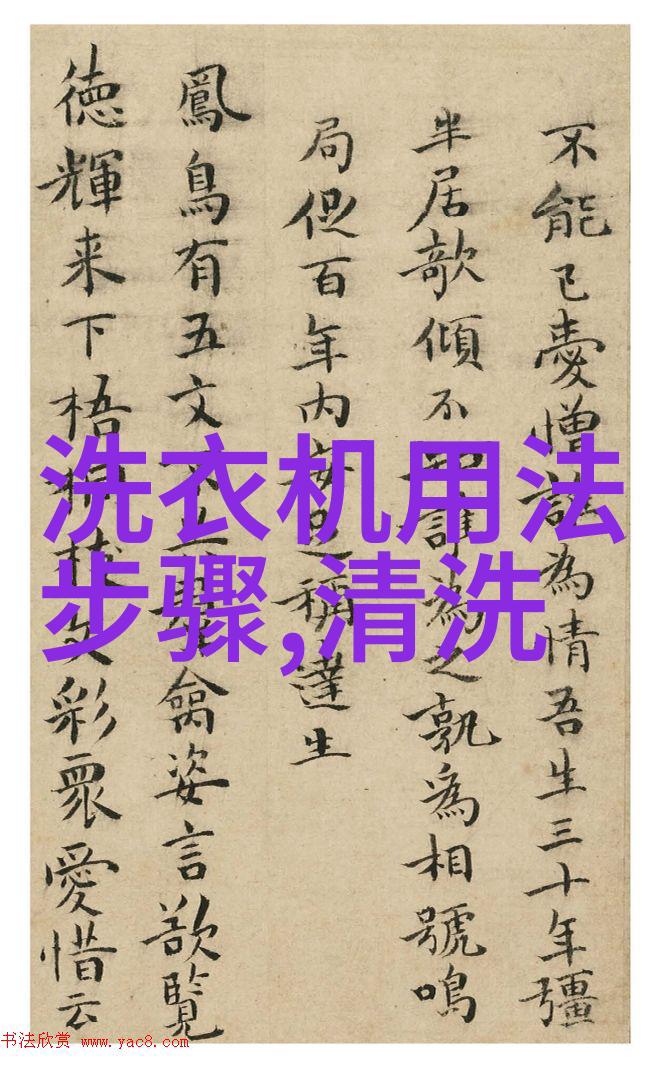 不能已憂憎詎為情吾生三十年彊
半居欹傾不知誰為之孰為相號鳴
局促百年内安足稱達生
鳳鳥有五文禽姿言欲覽
德輝来下梧文彩衆愛惜云
洗衣机用法
步骤,清洗
书法欣赏 www.yac8.com